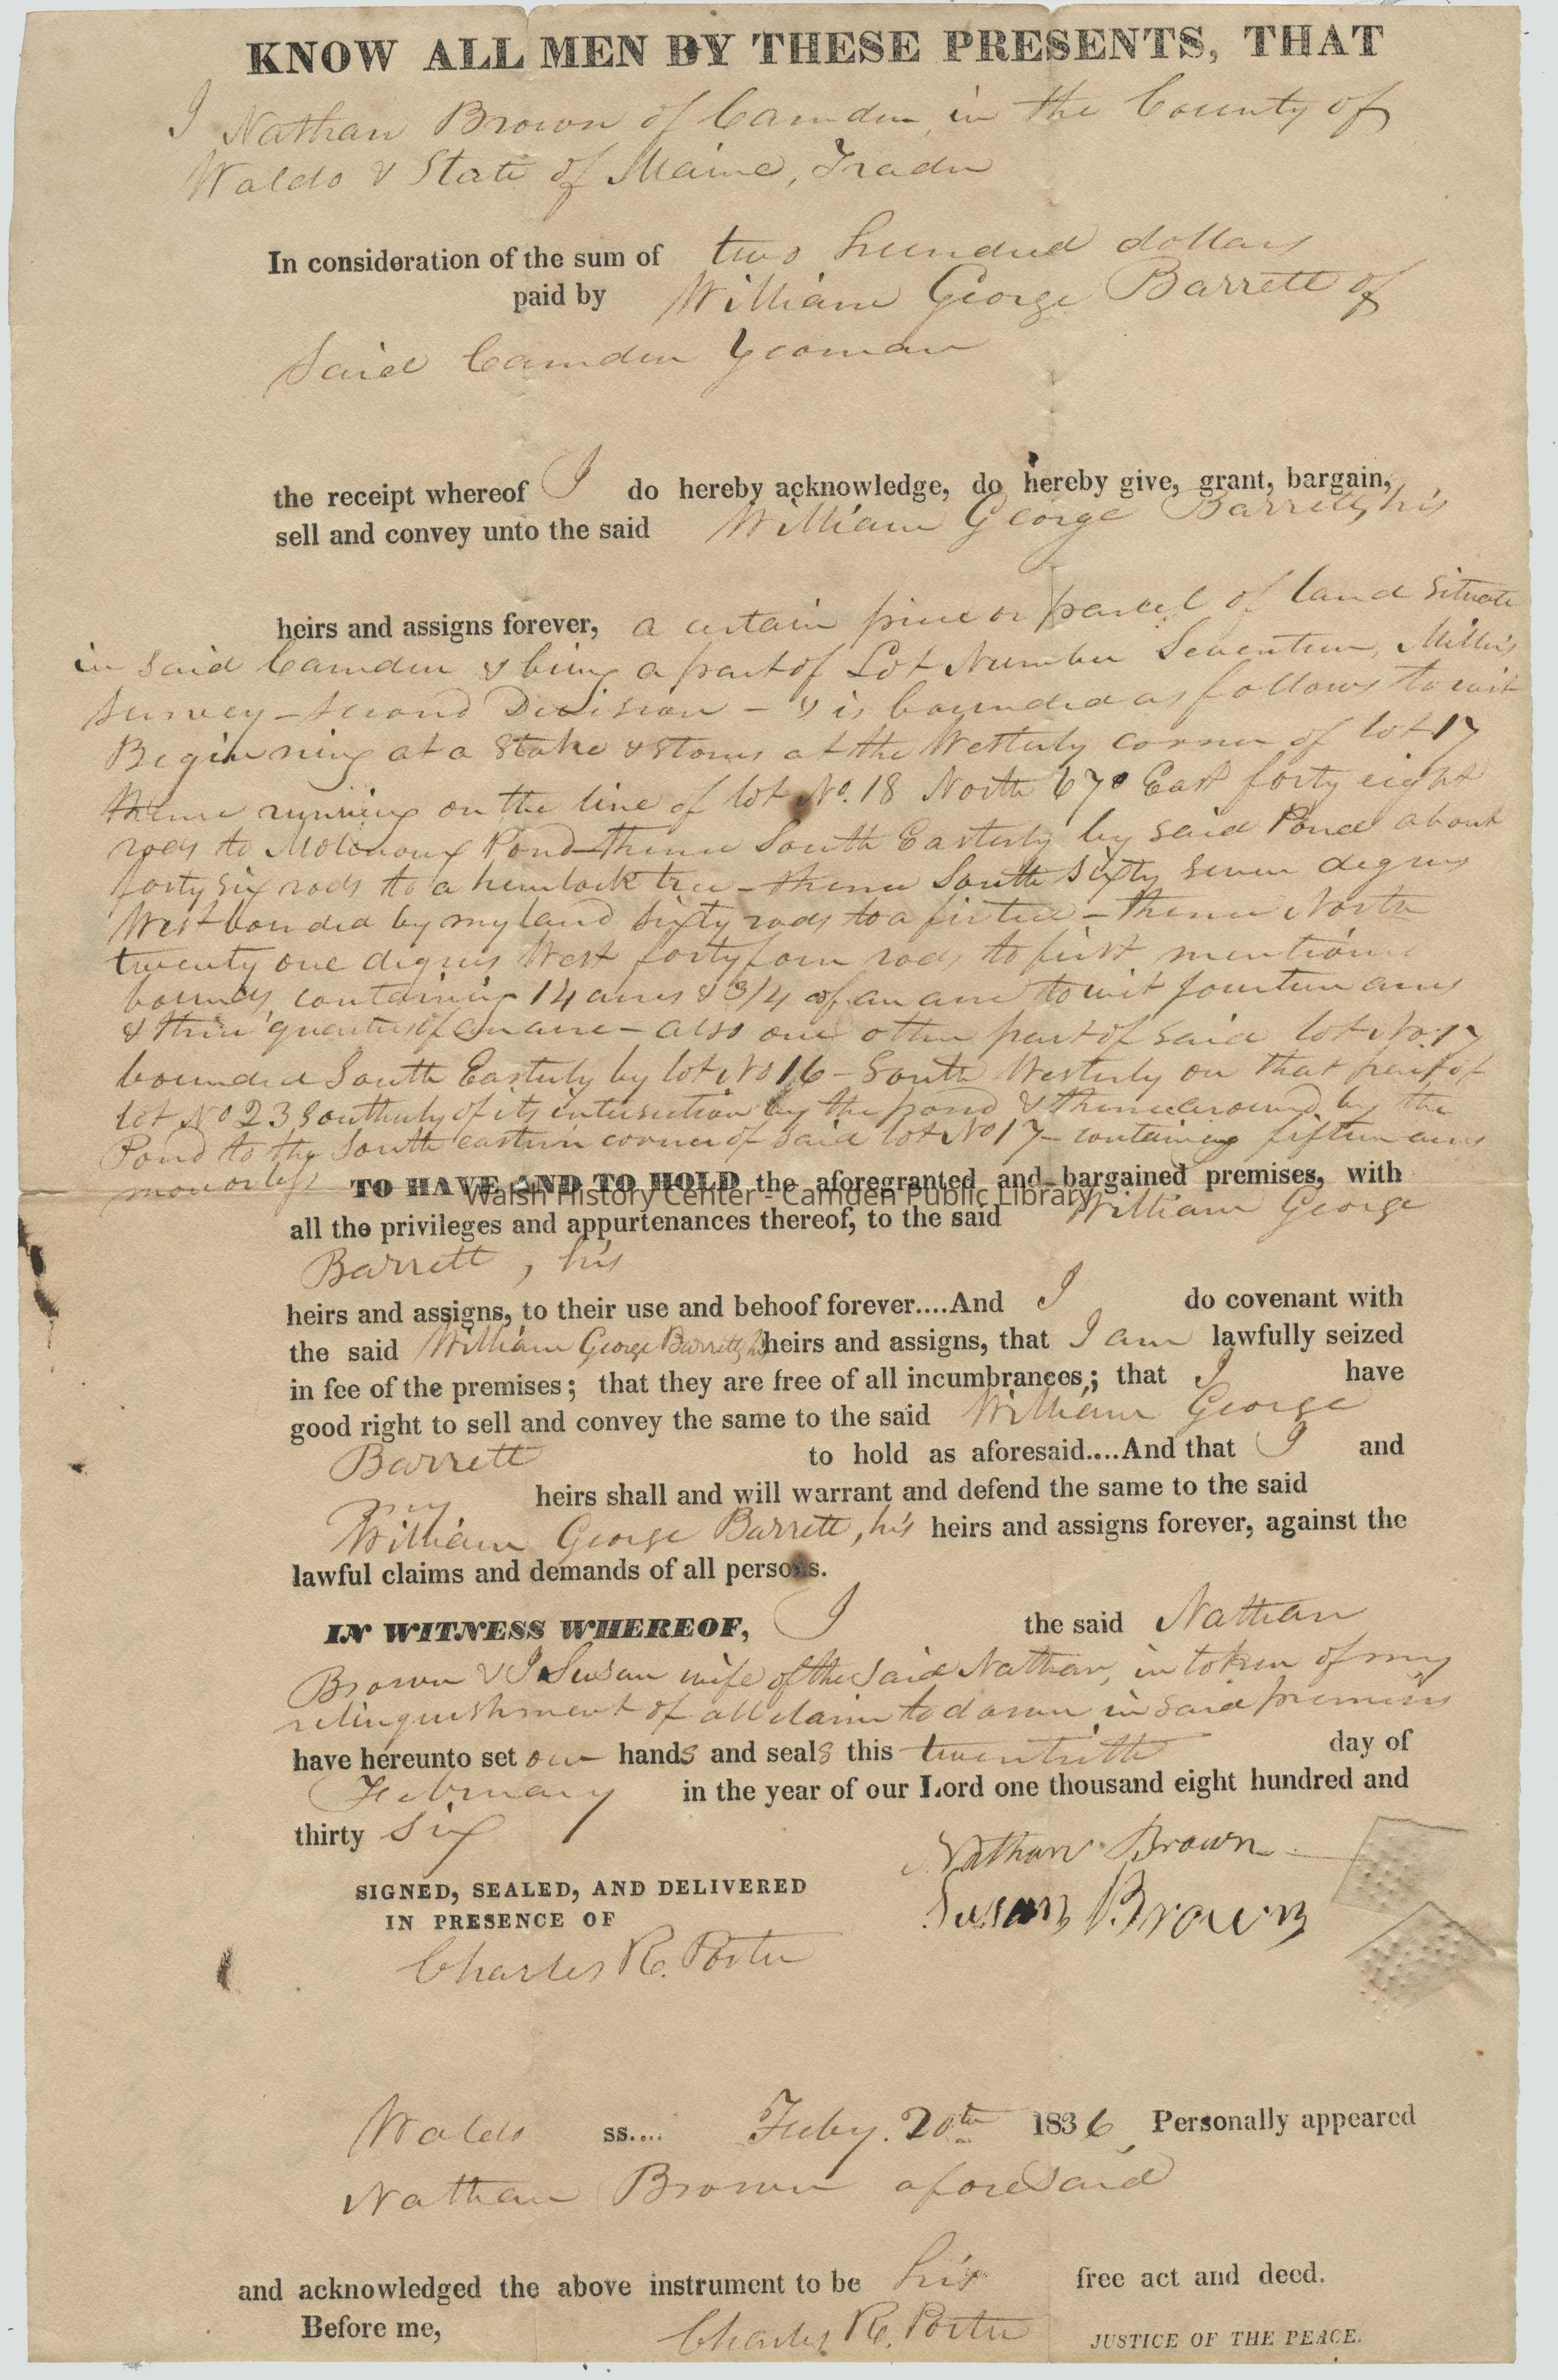 KNOW ALL MEN BY THESE PRESENTS, THAT
I Nathan Brown of Camden, in the County of
Waldo & State of Maine, Trader
In consideration of the sum of two hundred dollars
paid by William George Barrett of
Said Camden Yeoman
the receipt whereof I do hereby acknowledge, do hereby give, grant, bargain,
sell and convey unto the said William George Barrett, his
heirs and assigns forever, a certain piece or parcel of land situate
in said Camden & being a part of Lot Number Seventeen, Miller's
Survey - second Division - & is bounded as follows to wit
Beginning at a stake & stones at the Westerly corner of lot 17
thence running on the line of lot No. 18 North 67° East forty eight
rods to Pond - thence South Easterly by said Pond about
forty six rods to a hemlock tree - thence South sixty seven degrees
West bounded by my land sixty rods to a fir tree - thence North
twenty one degrees West forty four rods to first mentioned
bounds, containing 14 acres & 3/4 of an acre to wit fourteen acres
& three quarters of an acre - also one other part of said lot No. 17
bounded South Easterly by lot No 16 - South Westerly on that part of
lot No 23 Southerly of its intersection by the pond & thence around by the
Pond to the South eastern corner of said lot No 17 - containing fifteen acres
more or less TO HAVE AND TO HOLD the aforegranted and bargained premises, with
Walsh History Center - Camden Public Library
all the privileges and appurtenances thereof, to the said William George
Barrett, his
heirs and assigns, to their use and behoof forever....And I do covenant with
the said William George Barrett, his heirs and assigns, that I am lawfully seized
in fee of the premises; that they are free of all incumbrances; that I have
good right to sell and convey the same to the said William George
Barrett to hold as aforesaid....And that I and
my heirs shall and will warrant and defend the same to the said
William George Barrett, his heirs and assigns forever, against the
lawful claims and demands of all persons.
IN WITNESS WHEREOF, I the said Nathan
Brown & I Susan wife of the said Nathan, in token of my
relinquishment of all claim to dower in said premises
have hereunto set our hands and seals this twentieth day of
February in the year of our Lord one thousand eight hundred and
thirty six
Nathan Brown
SIGNED, SEALED, AND DELIVERED
IN PRESENCE OF
Susan Brown
Charles R. Porter
Waldo ss.... Feby. 20th 1836 Personally appeared
Nathan Brown aforesaid
and acknowledged the above instrument to be his free act and deed.
Before me, Charles R. Porter JUSTICE OF THE PEACE.